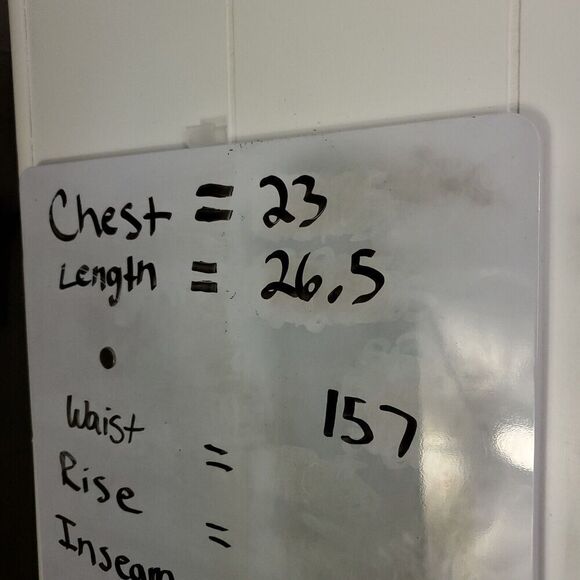 Chest = 23
Length = 26.5
157
Waist =
Rise =
Inseam